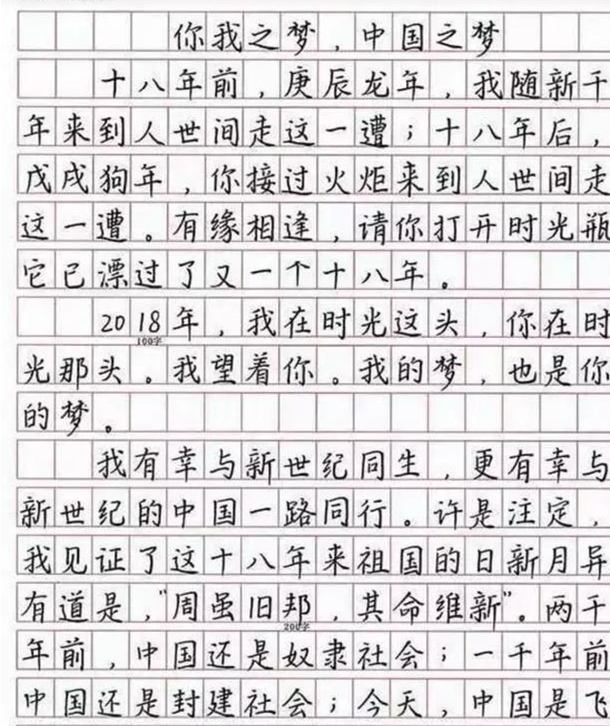 你我之梦，中国之梦
十八年前，庚辰龙年，我随新千
年来到人世间走这一遭；十八年后，
戊戌狗年，你接过火炬来到人世间走
这一遭。有缘相逢，请你打开时光瓶
它已漂过了又一个十八年。
2018年，我在时光这头，你在时
100字
光那头。我望着你。我的梦，也是你
的梦。
我有幸与新世纪同生，更有幸与
新世纪的中国一路同行。许是注定，
我见证了这十八年来祖国的日新月异
有道是，“周虽旧邦，其命维新”。两千
200字
年前，中国还是奴隶社会；一千年前
中国还是封建社会；今天，中国是飞